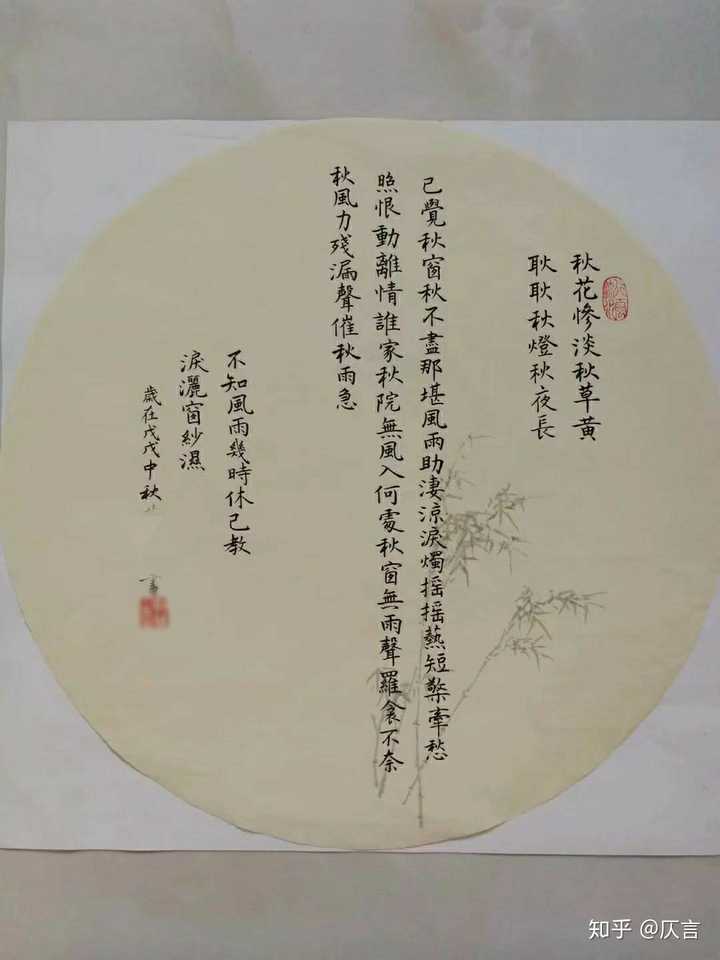 秋花惨淡秋草黄
耿耿秋燈秋夜長
已覺秋窗秋不盡那堪風雨助淒涼淚燭摇摇爇短檠牽愁
照恨動離情誰家秋院無風入何處秋窗無雨聲羅衾不奈
秋風力殘漏聲催秋雨急
不知風雨幾時休已教
淚灑窗紗濕
歲在戊戌中秋
書
知乎 @仄言